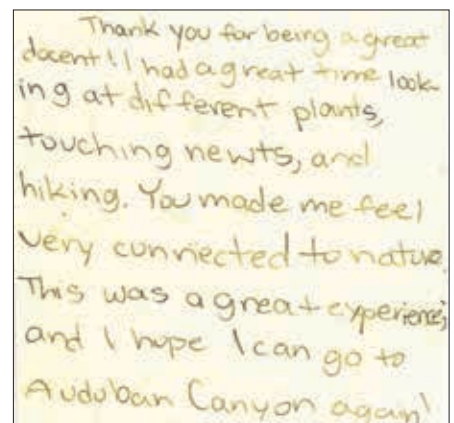 Thank you for being a great
docent! I had a great time look-
ing at different plants,
touching newts, and
hiking. You made me feel
very connected to nature.
This was a great experience,
and I hope I can go to
Auduban Canyon again!